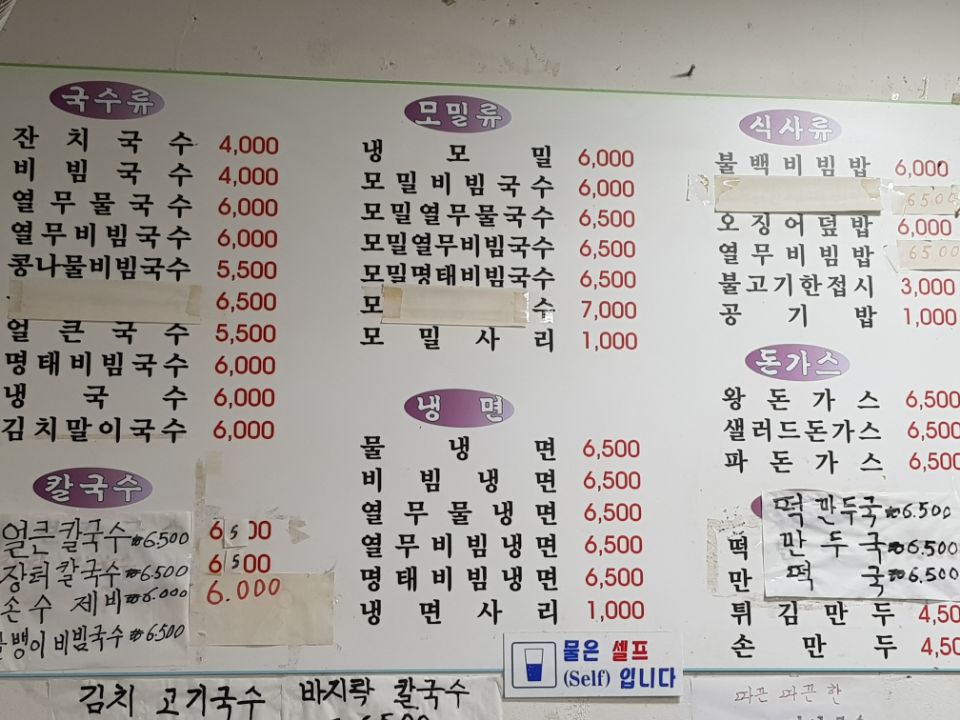 국수류
잔치국수 4,000
비빔국수 4,000
열무물국수 6,000
열무비빔국수 6,000
콩나물비빔국수 5,500
6,500
얼큰국수 5,500
명태비빔국수 6,000
냉국수 6,000
김치말이국수 6,000
칼국수
얼큰칼국수 ₩6.500 6,500
장터칼국수 ₩6.500 6,500
손수제비 ₩6.000 6.000
비빔국수 ₩6.500
모밀류
냉모밀 6,000
모밀비빔국수 6,000
모밀열무물국수 6,500
모밀열무비빔국수 6,500
모밀명태비빔국수 6,500
모 수 7,000
모밀사리 1,000
냉면
물냉면 6,500
비빔냉면 6,500
열무물냉면 6,500
열무비빔냉면 6,500
명태비빔냉면 6,500
냉면사리 1,000
식사류
불백비빔밥 6,000
6500
오징어덮밥 6,000
열무비빔밥 6500
불고기한접시 3,000
공기밥 1,000
돈가스
왕돈가스 6,500
샐러드돈가스 6,500
파돈가스 6,500
떡만두국 ₩6.500
떡 만두국 ₩6.500
만 떡국 ₩6.500
튀김만두 4,50
손만두 4,50
물은 셀프
(Self) 입니다
김치 고기국수
바지락 칼국수
6500
따끈 따끈한